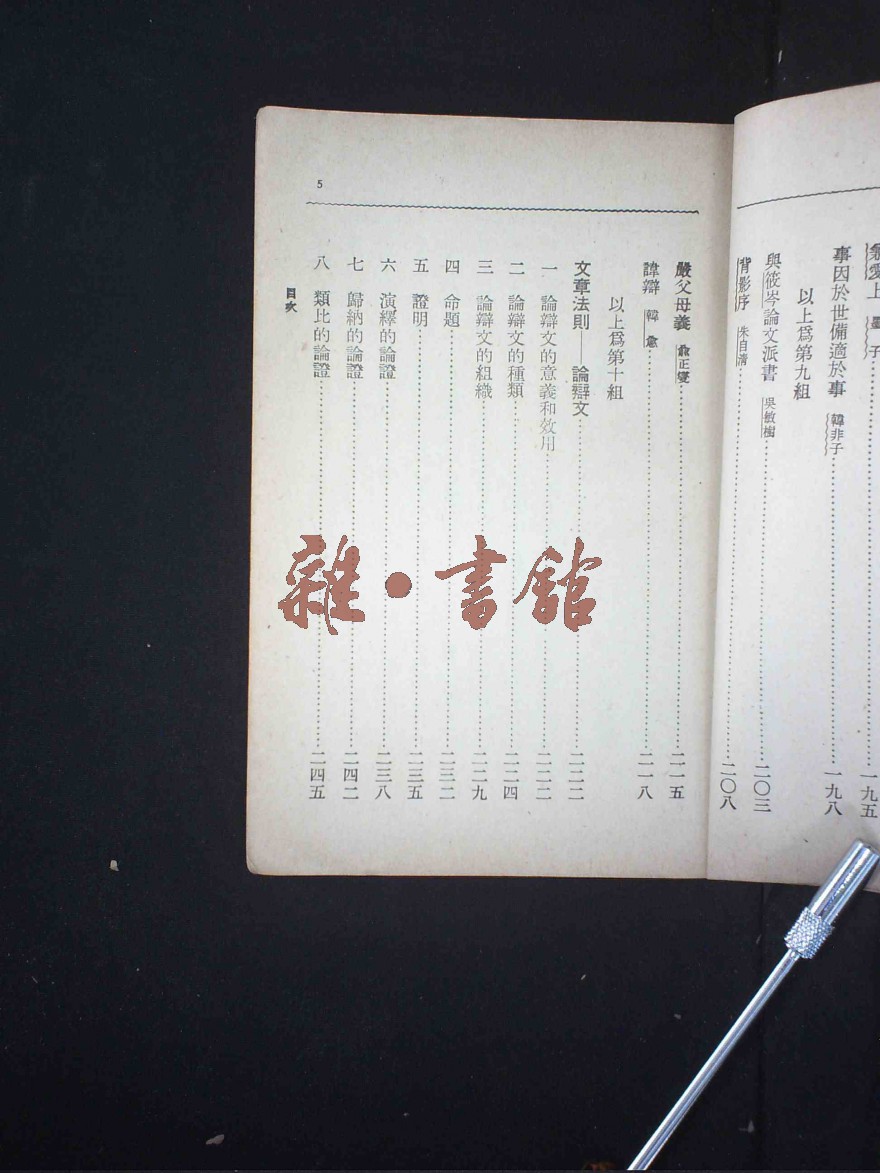 兼愛上 墨子 一九五
事因於世備適於事 韓非子 一九八
以上爲第九組
與筱岑論文派書 吳敏樹 二〇三
背影序 朱自清 二〇八
5
嚴父母義 俞正燮 二一五
諱辯 韓愈 二一八
以上爲第十組
文章法則——論辯文 二二二
一 論辯文的意義和效用 二二二
二 論辯文的種類 二二四
三 論辯文的組織 二二九
四 命題 二三二
五 證明 二三五
六 演繹的論證 二三八
七 歸納的論證 二四二
八 類比的論證 二四五
目次
雜·書館